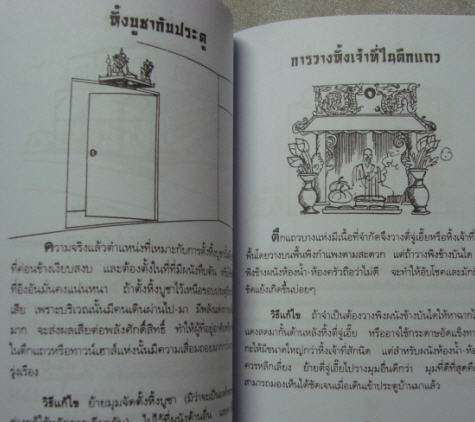 หิ้งบูชากับประตู
ความจริงแล้วตำแหน่งที่เหมาะกับการตั้งหิ้งบูชานั้น
ที่ค่อนข้างเงียบสงบ และต้องตั้งในที่ที่มีผนังทึบตัน
ที่อิงอันมั่นคงแน่นหนา ถ้าตั้งหิ้งบูชาไว้เหนือขอบประตู
เสีย เพราะบริเวณนั้นมีคนเดินผ่านไป-มา มีพลัง
มาก จะส่งผลเสียต่อพลังศักดิ์สิทธิ์ ทำให้ผู้ที่อยู่อาศัย
ในตึกแถวหรือทาวน์เฮาส์แห่งนั้นมีความเสื่อมถอยมากกว่า
รุ่งเรือง
วิธีแก้ไข ย้ายมุมจัดตั้งหิ้งบูชา
การวางหิ้งเจ้าที่ในตึกแถว
ตึกแถวบางแห่งมีเนื้อที่จำกัดจึงวางตี่จู่เอี๊ยะหรือหิ้งเจ้าที่
พื้นโดยวางบนพื้นพิงกำแพงตามสะดวก แต่ถ้าวางพิงข้างบันได
พิงข้างผนังห้องน้ำ-ห้องครัวถือว่าไม่ดี จะทำให้อับโชคและมัก
ขัดแย้งเกิดขึ้นบ่อยๆ
วิธีแก้ไข ถ้าจำเป็นต้องวางพิงผนังข้างบันไดให้หาฉาก
แดงสดมากั้นด้านหลังหิ้งตี่จู่เอี๊ยะ หรืออาจใช้กระดาษอัดแข็งทา
กะให้มีขนาดใหญ่กว่าหิ้งเจ้าที่สักนิด แต่สำหรับผนังห้องน้ำ-ห้อง
ควรหลีกเลี่ยง ย้ายตี่จู่เอี๊ยะไปวางมุมอื่นดีกว่า มุมที่ดีที่สุดคือ
สามารถมองเห็นได้ชัดเจนเมื่อเดินเข้าประตูบ้านมาแล้ว